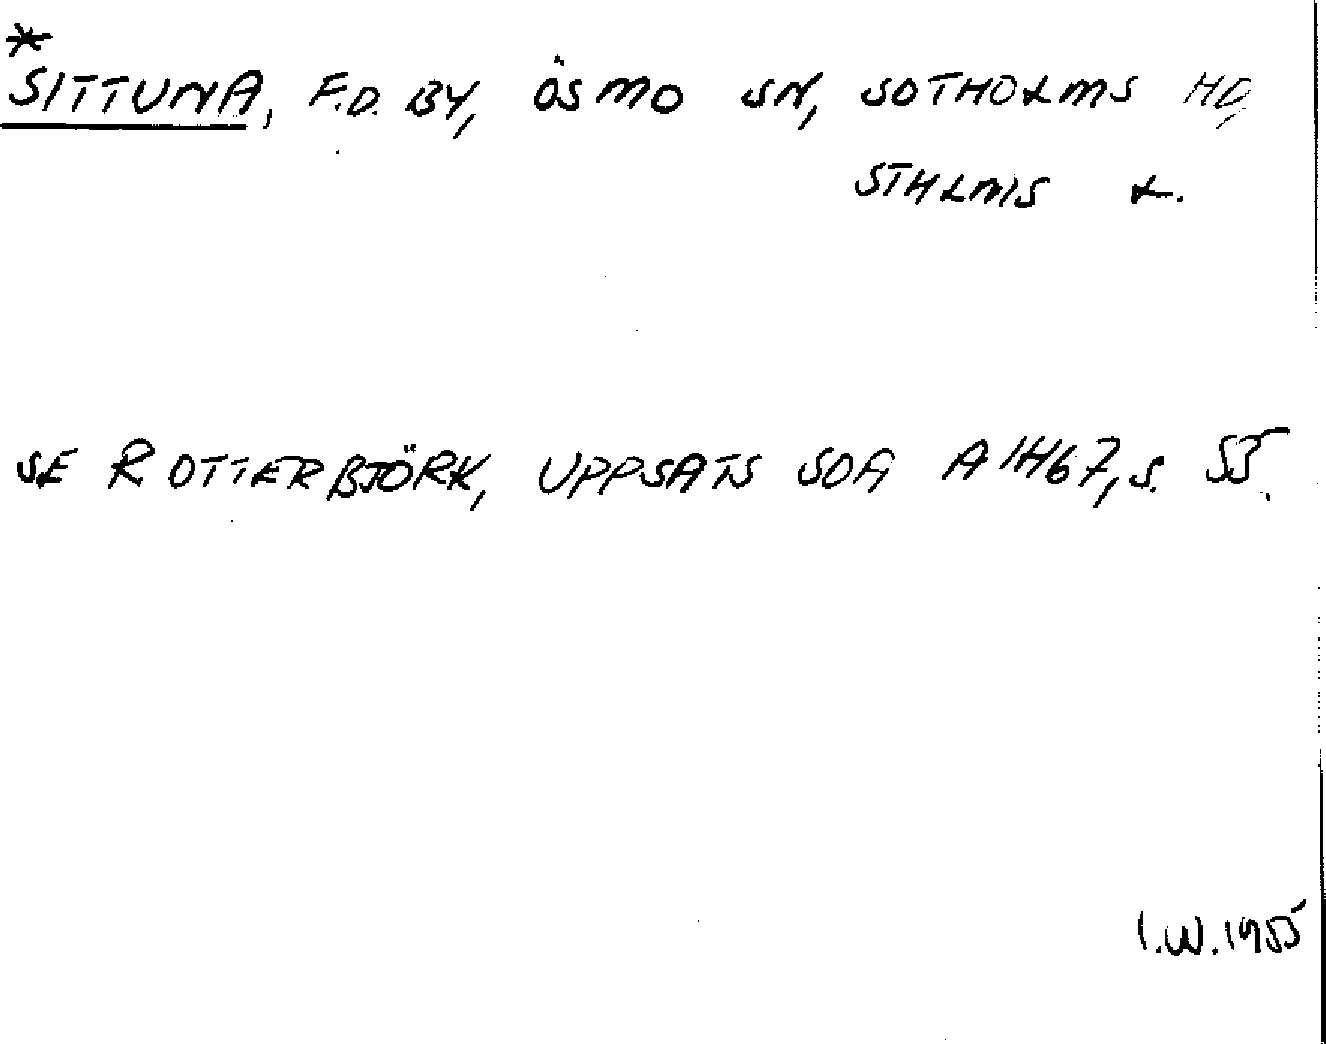 *
SITTUNA, F.D. BY, ÖSMO SN, SOTHOLMS HD,
STHLMS L.
SE R OTTERBJÖRK, UPPSATS SOA A 1467, S. 55.
I.W. 1955